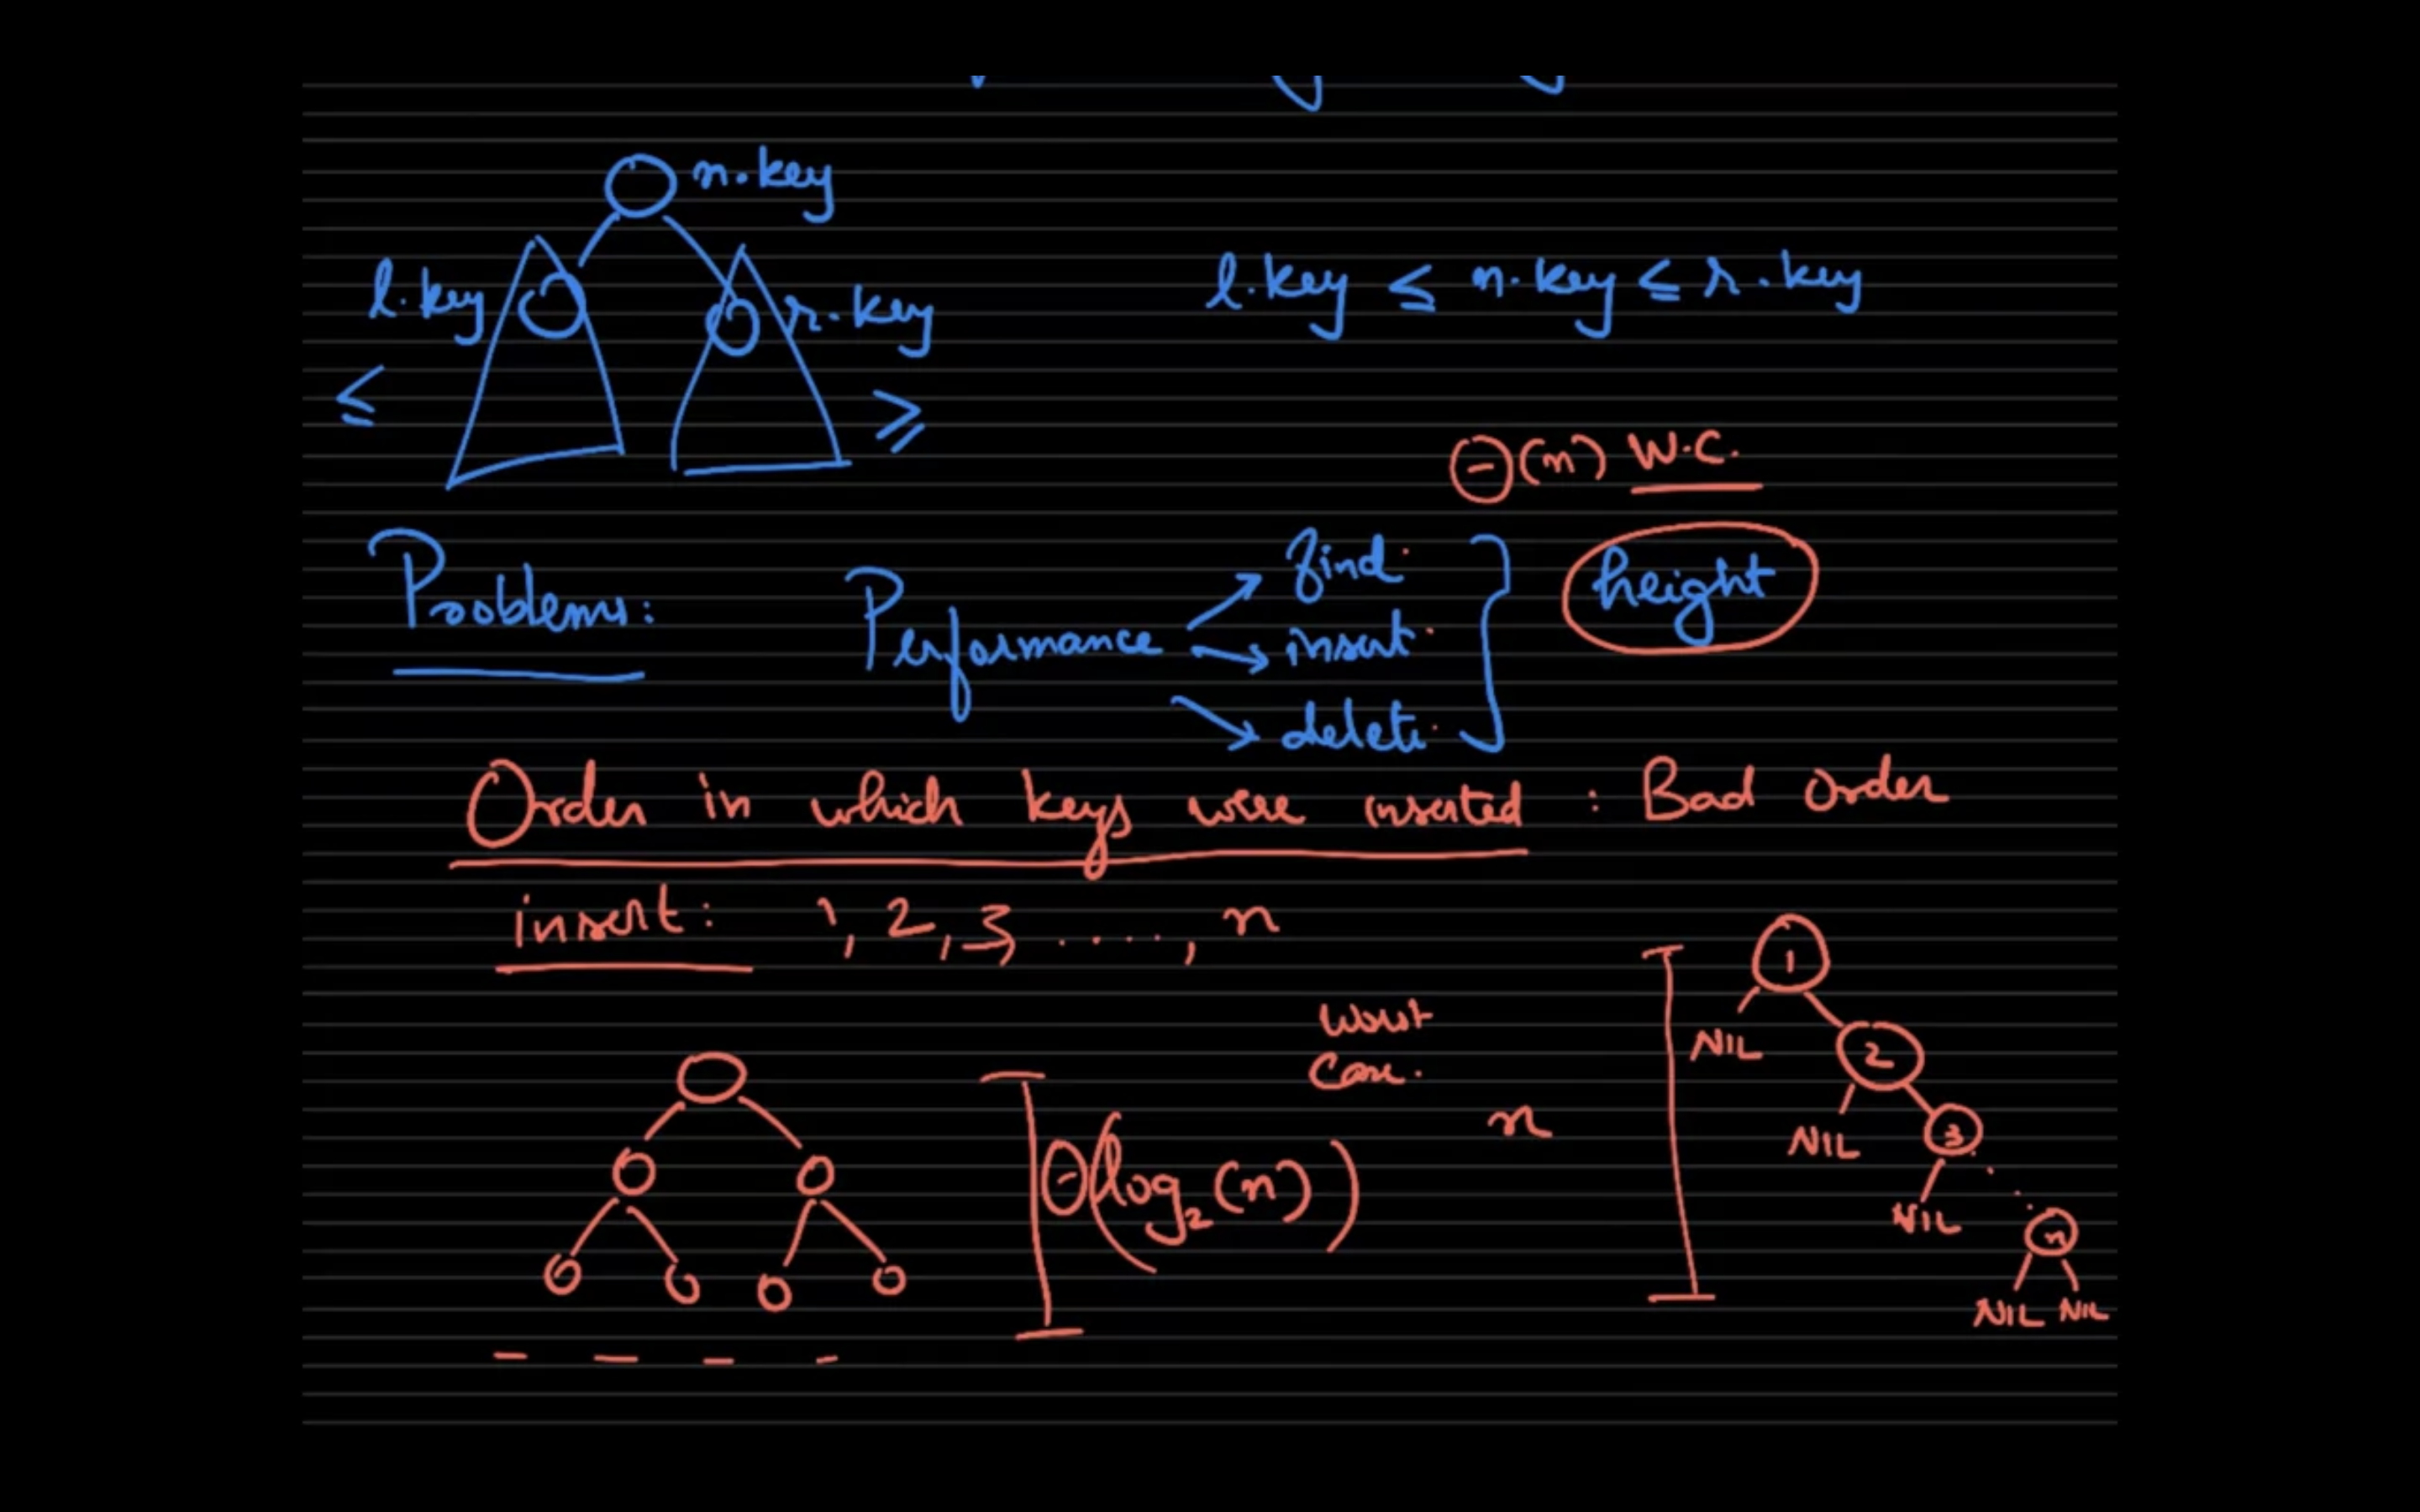 n.key
l.key
r.key
l.key ≤ n.key ≤ r.key
≤
≥
Θ(n) W.C.
Problems:
Performance
find
insert
delete
height
Order in which keys were inserted : Bad Order
insert: 1, 2, 3 ...., n
Worst
Case.
Θ(log₂(n))
n
1
NIL
2
NIL
3
NIL
n
NIL NIL